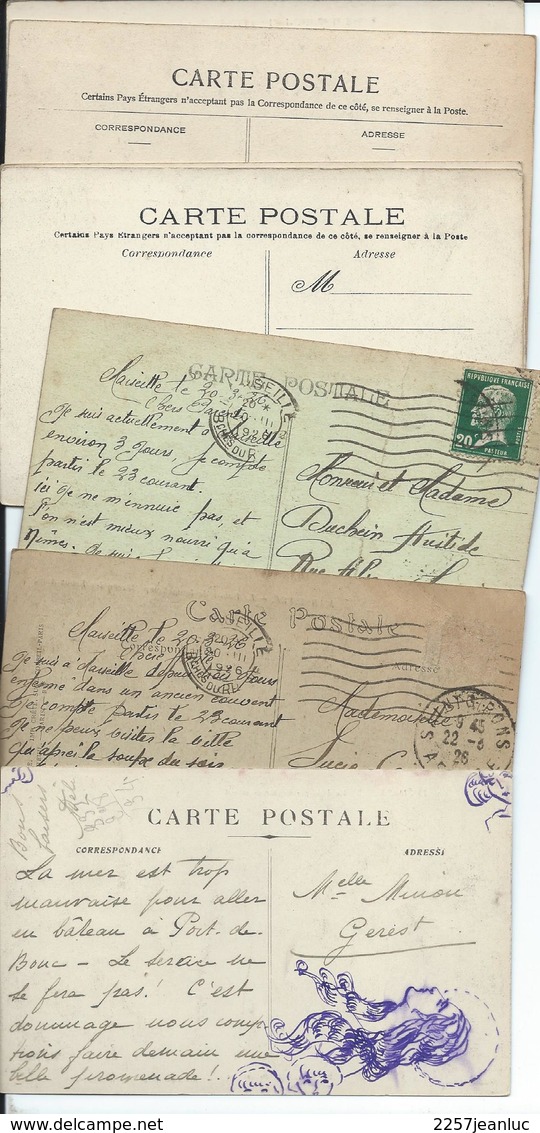 CARTE POSTALE
Certains Pays Étrangers n'acceptent pas la Correspondance de ce côté, se renseigner à la Poste.
CORRESPONDANCE
ADRESSE
CARTE POSTALE
Certains Pays Etrangers n'acceptent pas la correspondance de ce côté, se renseigner à la Poste
Correspondance
Adresse
M
CARTE POSTALE
RÉPUBLIQUE FRANÇAISE
20
POSTES
PASTEUR
Marseille le 20-3-26
Chers
Je suis actuellement à Marseille
environ 3 jours, je compte
partir le 23 courant.
ici je ne m'ennuie pas, et
l'on est mieux nourri qu'à
Nîmes. Je suis
Monsieur et Madame
Duchein
Rue
Carte Postale
Correspondance
Adresse
Marseille le 20-3-26
Chère
Je suis à Marseille depuis jours
enfermé dans un ancien couvent
Je compte partir le 23 courant
Je ne peux visiter la ville
qu'après la soupe du soir
Mademoiselle
Lucie
9 45
22 -3
26
CARTE POSTALE
CORRESPONDANCE
ADRESSE
Bons
baisers
La mer est trop
mauvaise pour aller
en bâteau à Port-de-
Bouc – Le service ne
se fera pas! C'est
dommage nous comp
tions faire demain une
belle promenade!
Melle Minou
Gerest
2257jeanluc
www.delcampe.net